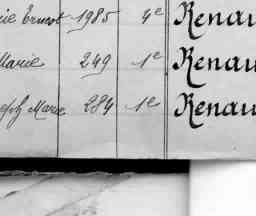 Ernest 1985 4e Renau
Marie 249 1e Renau
eph Marie 284 1e Renau